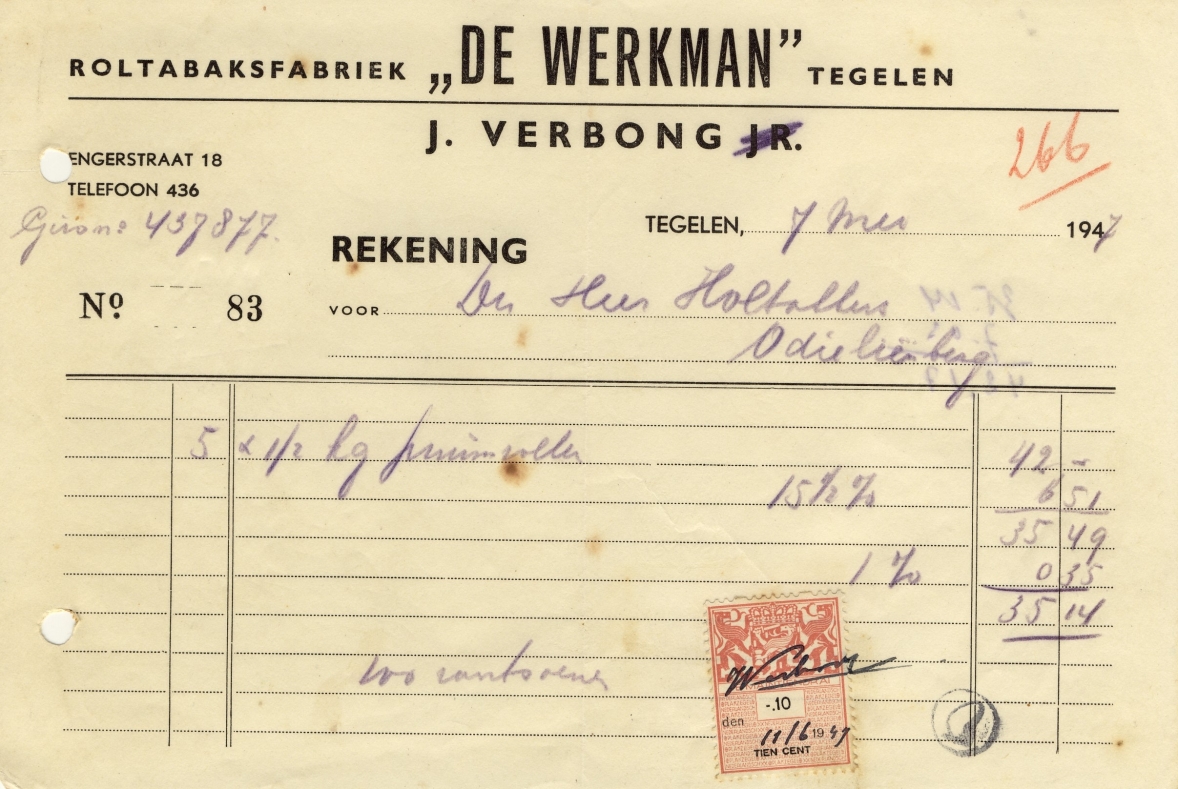 ROLTABAKSFABRIEK „DE WERKMAN” TEGELEN
J. VERBONG JR.
266
ENGERSTRAAT 18
TELEFOON 436
Giro no 437877.
TEGELEN, 7 Mei 1947
REKENING
No 83
VOOR Den Heer Holtackers
Odieliënberg
5 x 1/2 kg pruimrollen 42 -
15 1/2 % 6 51
35 49
1 % 0 35
35 14
100 rantsoenen
-.10
den 11/6 1947
TIEN CENT